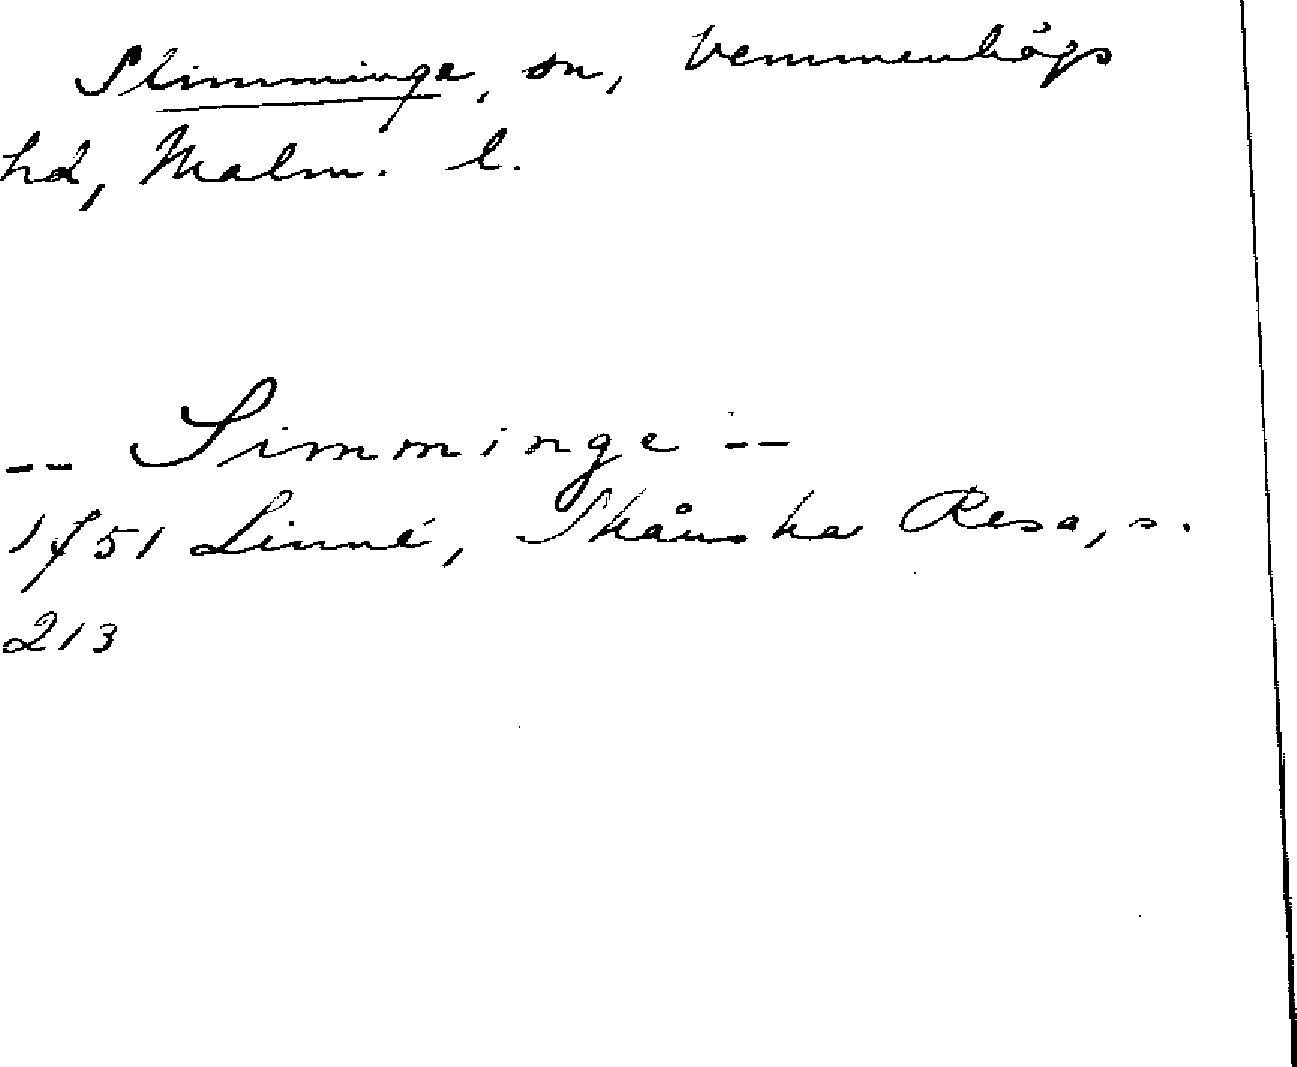 Slimminge, sn, Vemmenhögs
hd, Malm. l.
-- Simminge --
1751 Linné, Skånska Resa, s.
213